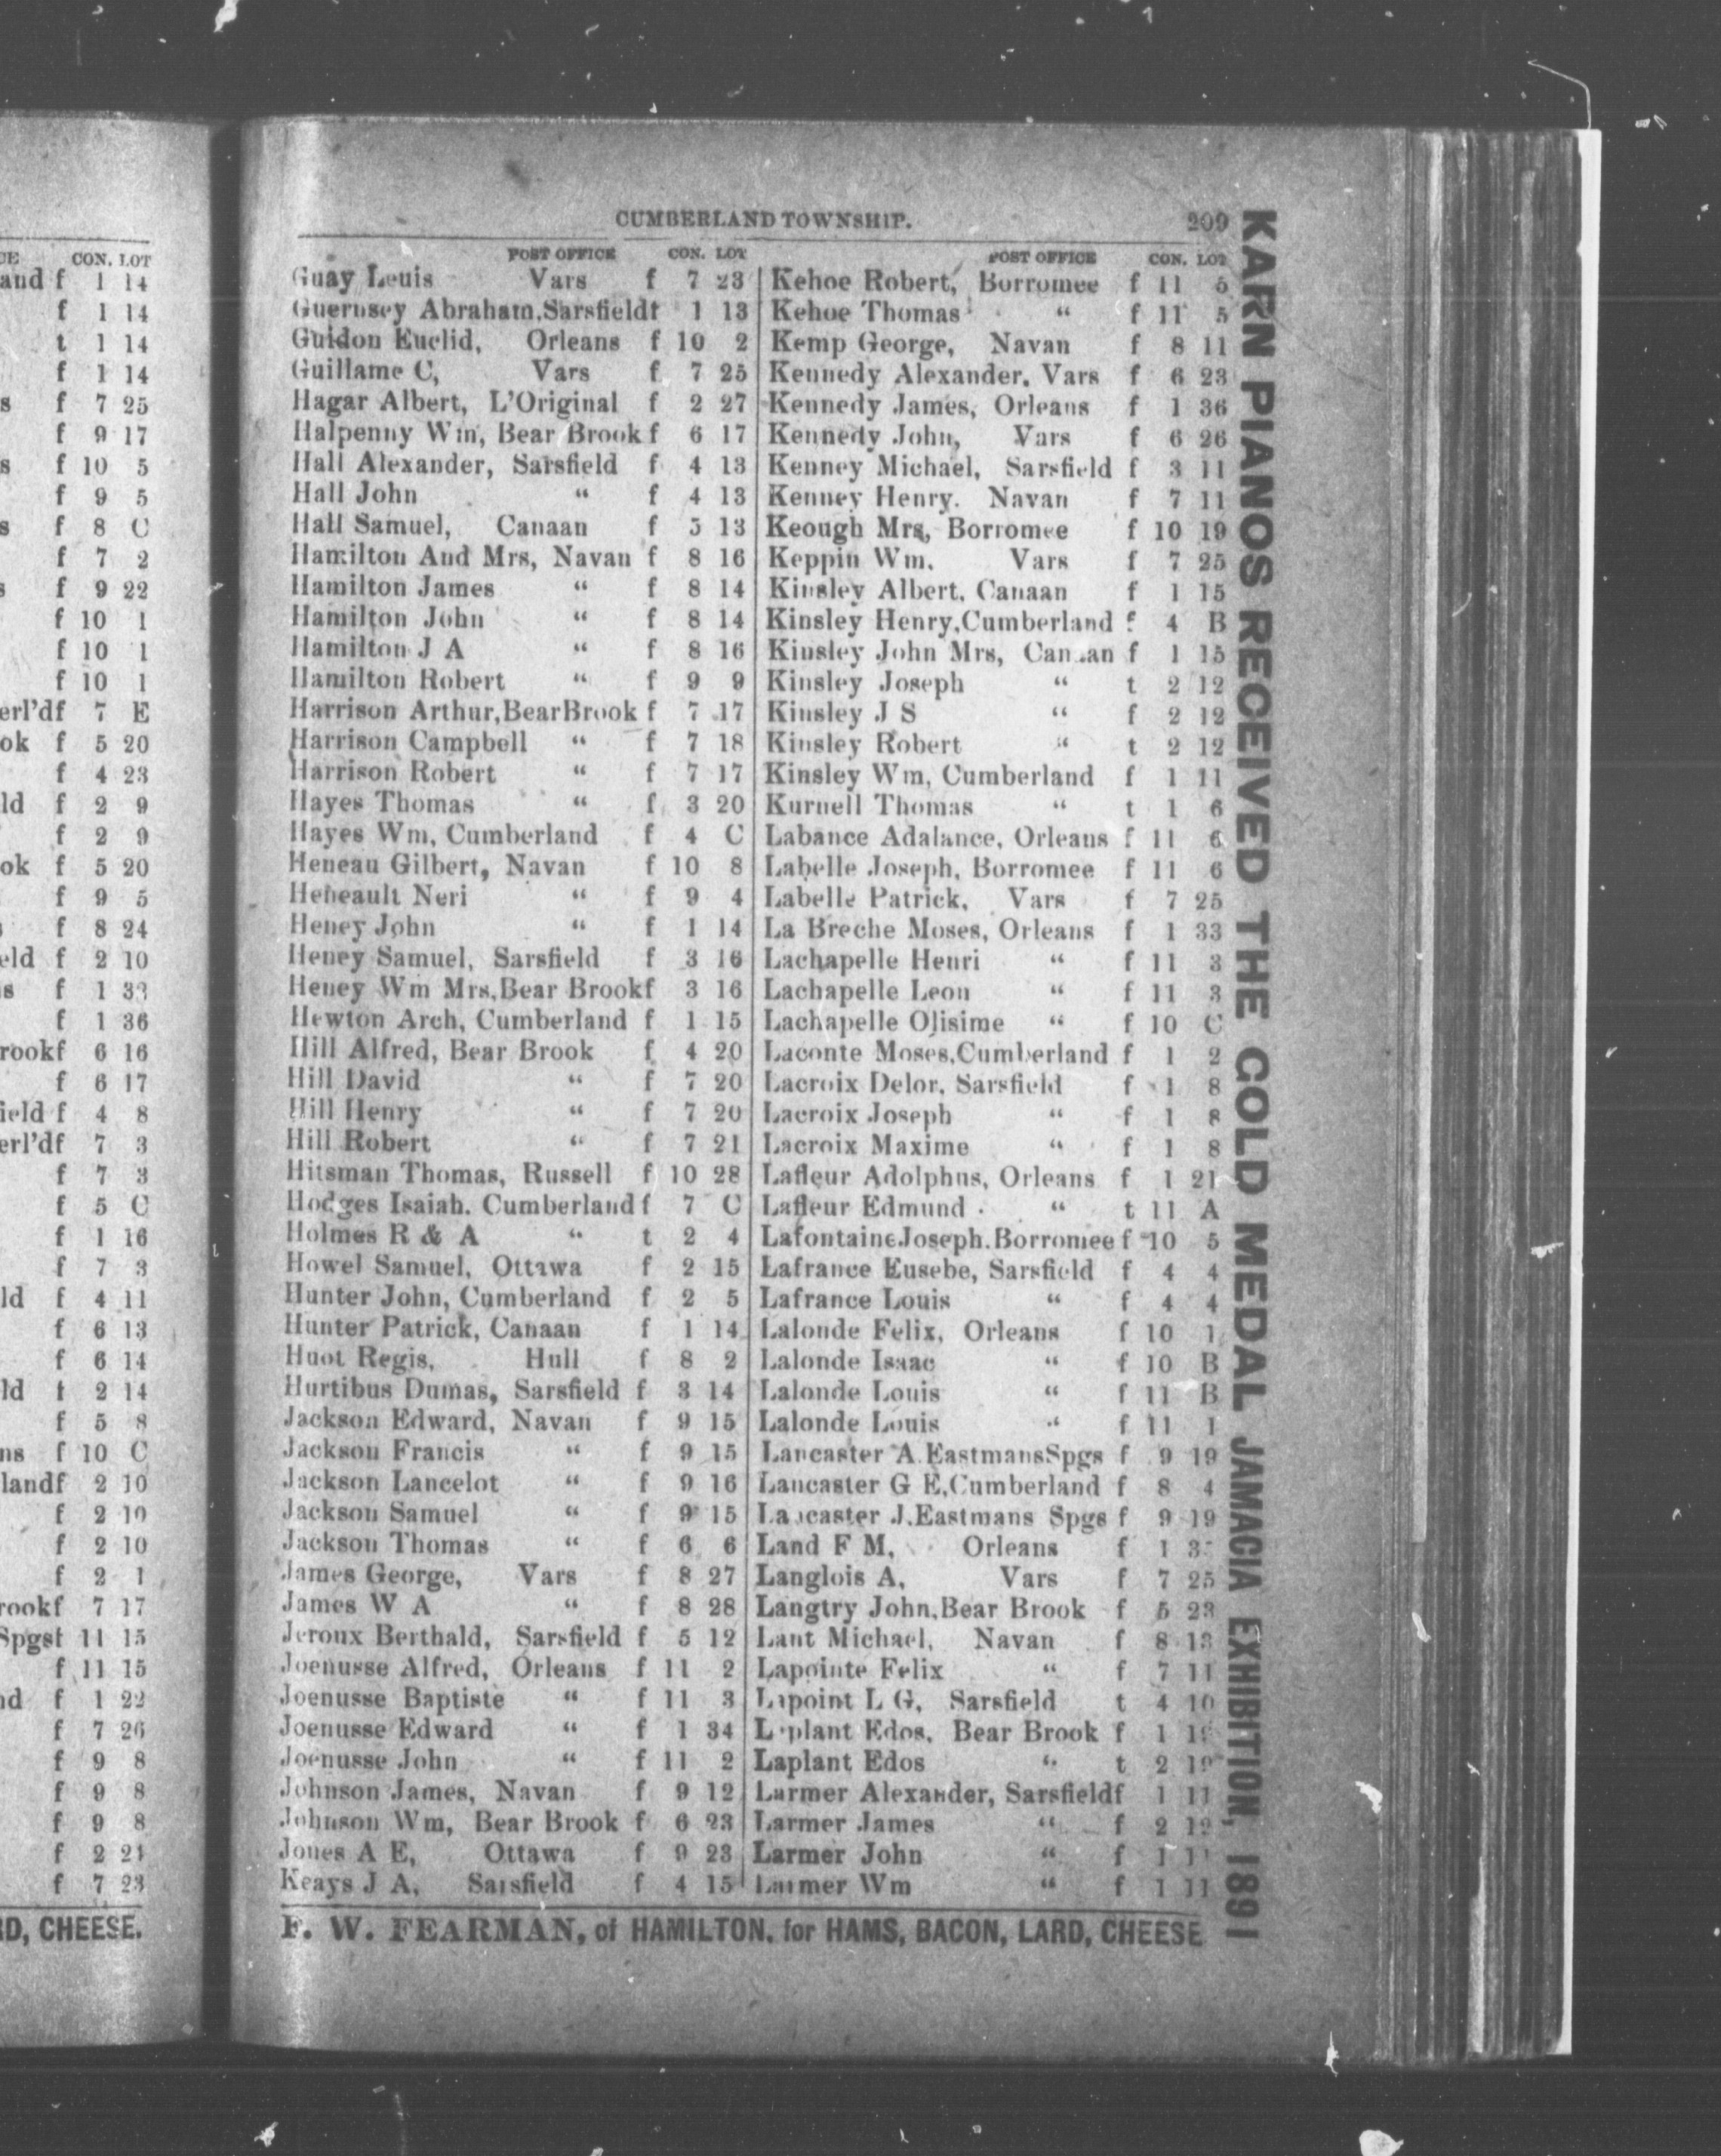 CUMBERLAND TOWNSHIP. 209
POST OFFICE CON. LOT
Guay Louis Vars f 7 23
Guernsey Abraham, Sarsfield t 1 13
Guidon Euclid, Orleans f 10 2
Guillame C, Vars f 7 25
Hagar Albert, L'Original f 2 27
Halpenny Wm, Bear Brook f 6 17
Hall Alexander, Sarsfield f 4 13
Hall John " f 4 13
Hall Samuel, Canaan f 5 13
Hamilton And Mrs, Navan f 8 16
Hamilton James " f 8 14
Hamilton John " f 8 14
Hamilton J A " f 8 16
Hamilton Robert " f 9 9
Harrison Arthur, Bear Brook f 7 17
Harrison Campbell " f 7 18
Harrison Robert " f 7 17
Hayes Thomas " f 3 20
Hayes Wm, Cumberland f 4 C
Heneau Gilbert, Navan f 10 8
Heneault Neri " f 9 4
Heney John " f 1 14
Heney Samuel, Sarsfield f 3 16
Heney Wm Mrs, Bear Brook f 3 16
Hewton Arch, Cumberland f 1 15
Hill Alfred, Bear Brook f 4 20
Hill David " f 7 20
Hill Henry " f 7 20
Hill Robert " f 7 21
Hitsman Thomas, Russell f 10 28
Hodges Isaiah. Cumberland f 7 C
Holmes R & A " t 2 4
Howel Samuel, Ottawa f 2 15
Hunter John, Cumberland f 2 5
Hunter Patrick, Canaan f 1 14
Huot Regis, Hull f 8 2
Hurtibus Dumas, Sarsfield f 3 14
Jackson Edward, Navan f 9 15
Jackson Francis " f 9 15
Jackson Lancelot " f 9 16
Jackson Samuel " f 9 15
Jackson Thomas " f 6 6
James George, Vars f 8 27
James W A " f 8 28
Jeroux Berthald, Sarsfield f 5 12
Joenusse Alfred, Orleans f 11 2
Joenusse Baptiste " f 11 3
Joenusse Edward " f 1 34
Joenusse John " f 11 2
Johnson James, Navan f 9 12
Johnson Wm, Bear Brook f 6 23
Jones A E, Ottawa f 9 23
Keays J A, Sarsfield f 4 15
POST OFFICE CON. LOT
Kehoe Robert, Borromee f 11 5
Kehoe Thomas " f 11 5
Kemp George, Navan f 8 11
Kennedy Alexander, Vars f 6 23
Kennedy James, Orleans f 1 36
Kennedy John, Vars f 6 26
Kenney Michael, Sarsfield f 3 11
Kenney Henry. Navan f 7 11
Keough Mrs, Borromee f 10 19
Keppin Wm. Vars f 7 25
Kinsley Albert, Canaan f 1 15
Kinsley Henry, Cumberland f 4 B
Kinsley John Mrs, Canaan f 1 15
Kinsley Joseph " t 2 12
Kinsley J S " f 2 12
Kinsley Robert " t 2 12
Kinsley Wm, Cumberland f 1 11
Kurnell Thomas " t 1 6
Labance Adalance, Orleans f 11 6
Labelle Joseph, Borromee f 11 6
Labelle Patrick, Vars f 7 25
La Breche Moses, Orleans f 1 33
Lachapelle Henri " f 11 3
Lachapelle Leon " f 11 3
Lachapelle Olisime " f 10 C
Laconte Moses, Cumberland f 1 2
Lacroix Delor, Sarsfield f 1 8
Lacroix Joseph " f 1 8
Lacroix Maxime " f 1 8
Lafleur Adolphus, Orleans f 1 21
Lafleur Edmund " t 11 A
Lafontaine Joseph. Borromee f 10 5
Lafrance Eusebe, Sarsfield f 4 4
Lafrance Louis " f 4 4
Lalonde Felix, Orleans f 10 1
Lalonde Isaac " f 10 B
Lalonde Louis " f 11 B
Lalonde Louis " f 11 1
Lancaster A. Eastmans Spgs f 9 19
Lancaster G E, Cumberland f 8 4
Lancaster J. Eastmans Spgs f 9 19
Land F M, Orleans f 1
Langlois A, Vars f 7 25
Langtry John, Bear Brook f 5 23
Lant Michael, Navan f 8 13
Lapointe Felix " f 7 11
Lapoint L G, Sarsfield t 4 10
Laplant Edos, Bear Brook f 1
Laplant Edos " t 2
Larmer Alexander, Sarsfield f 1 11
Larmer James " f 2 12
Larmer John " f 1 11
Larmer Wm " f 1 11
F. W. FEARMAN, of HAMILTON, for HAMS, BACON, LARD, CHEESE
KARN PIANOS RECEIVED THE GOLD MEDAL JAMACIA EXHIBITION, 1891
CON. LOT
and f 1 14
f 1 14
t 1 14
f 1 14
s f 7 25
f 9 17
s f 10 5
f 9 5
s f 8 C
f 7 2
s f 9 22
f 10 1
f 10 1
f 10 1
erl'd f 7 E
ok f 5 20
f 4 23
ld f 2 9
f 2 9
ok f 5 20
f 9 5
f 8 24
eld f 2 10
s f 1 33
f 1 36
rook f 6 16
f 6 17
ield f 4 8
erl'd f 7 3
f 7 3
f 5 C
f 1 16
f 7 3
ld f 4 11
f 6 13
f 6 14
ld t 2 14
f 5 8
ns f 10 C
land f 2 10
f 2 10
f 2 10
f 2 1
rook f 7 17
Spgs t 11 15
f 11 15
nd f 1 22
f 7 26
f 9 8
f 9 8
f 9 8
f 2 21
f 7 23
RD, CHEESE.